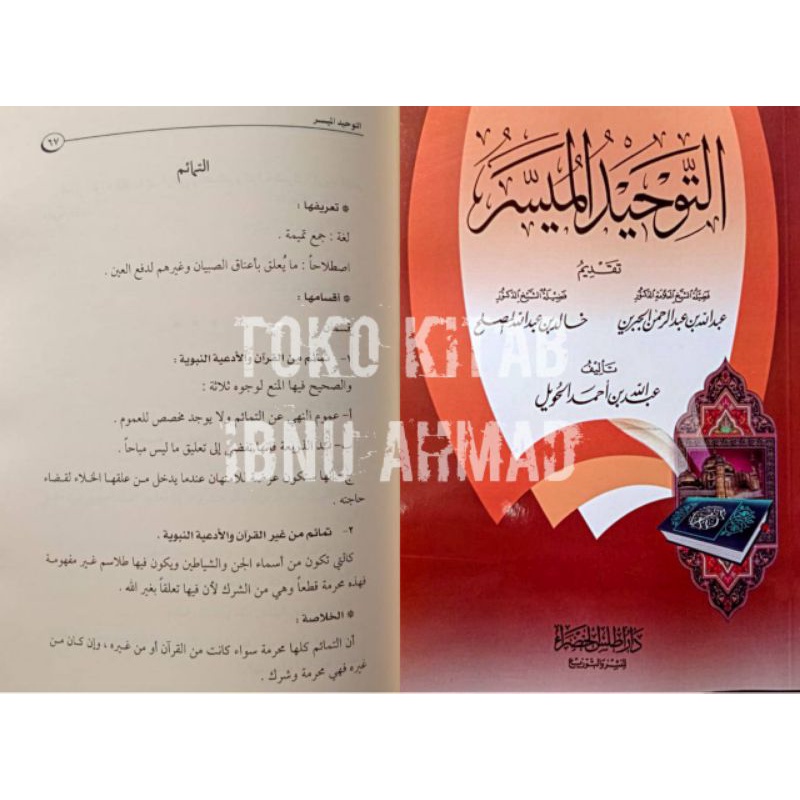 التوحيد الميسر
٦٧
التمائم
* تعريفها :
لغة : جمع تميمة .
اصطلاحاً : ما يُعلق بأعناق الصبيان وغيرهم لدفع العين .
* أقسامها :
١- تمائم من القرآن والأدعية النبوية :
والصحيح فيها المنع لوجوه ثلاثة :
أ- عموم النهي عن التمائم ولا يوجد مخصص للعموم .
الذريعة إلى تعليق ما ليس مباحاً .
عندما يدخل من علقها الخلاء لقضاء
حاجته .
٢- تمائم من غير القرآن والأدعية النبوية .
كالتي تكون من أسماء الجن والشياطين ويكون فيها طلاسم غير مفهومة
فهذه محرمة قطعاً وهي من الشرك لأن فيها تعلقاً بغير الله .
* الخلاصة :
أن التمائم كلها محرمة سواء كانت من القرآن أو من غيره ، وإن كان من
غيره فهي محرمة وشرك .
التَّوحيدُ المُيسَّرُ
تقديمُ
فضيلة الشيخ العلامة الدكتور
عبد الله بن عبد الرحمن الجبرين
فضيلة الشيخ الدكتور
خالد بن عبد الله المصلح
تأليف
عبد الله بن أحمد الحويل
دار أطلس الخضراء
للنشر والتوزيع
TOKO KITAB
IBNU AHMAD